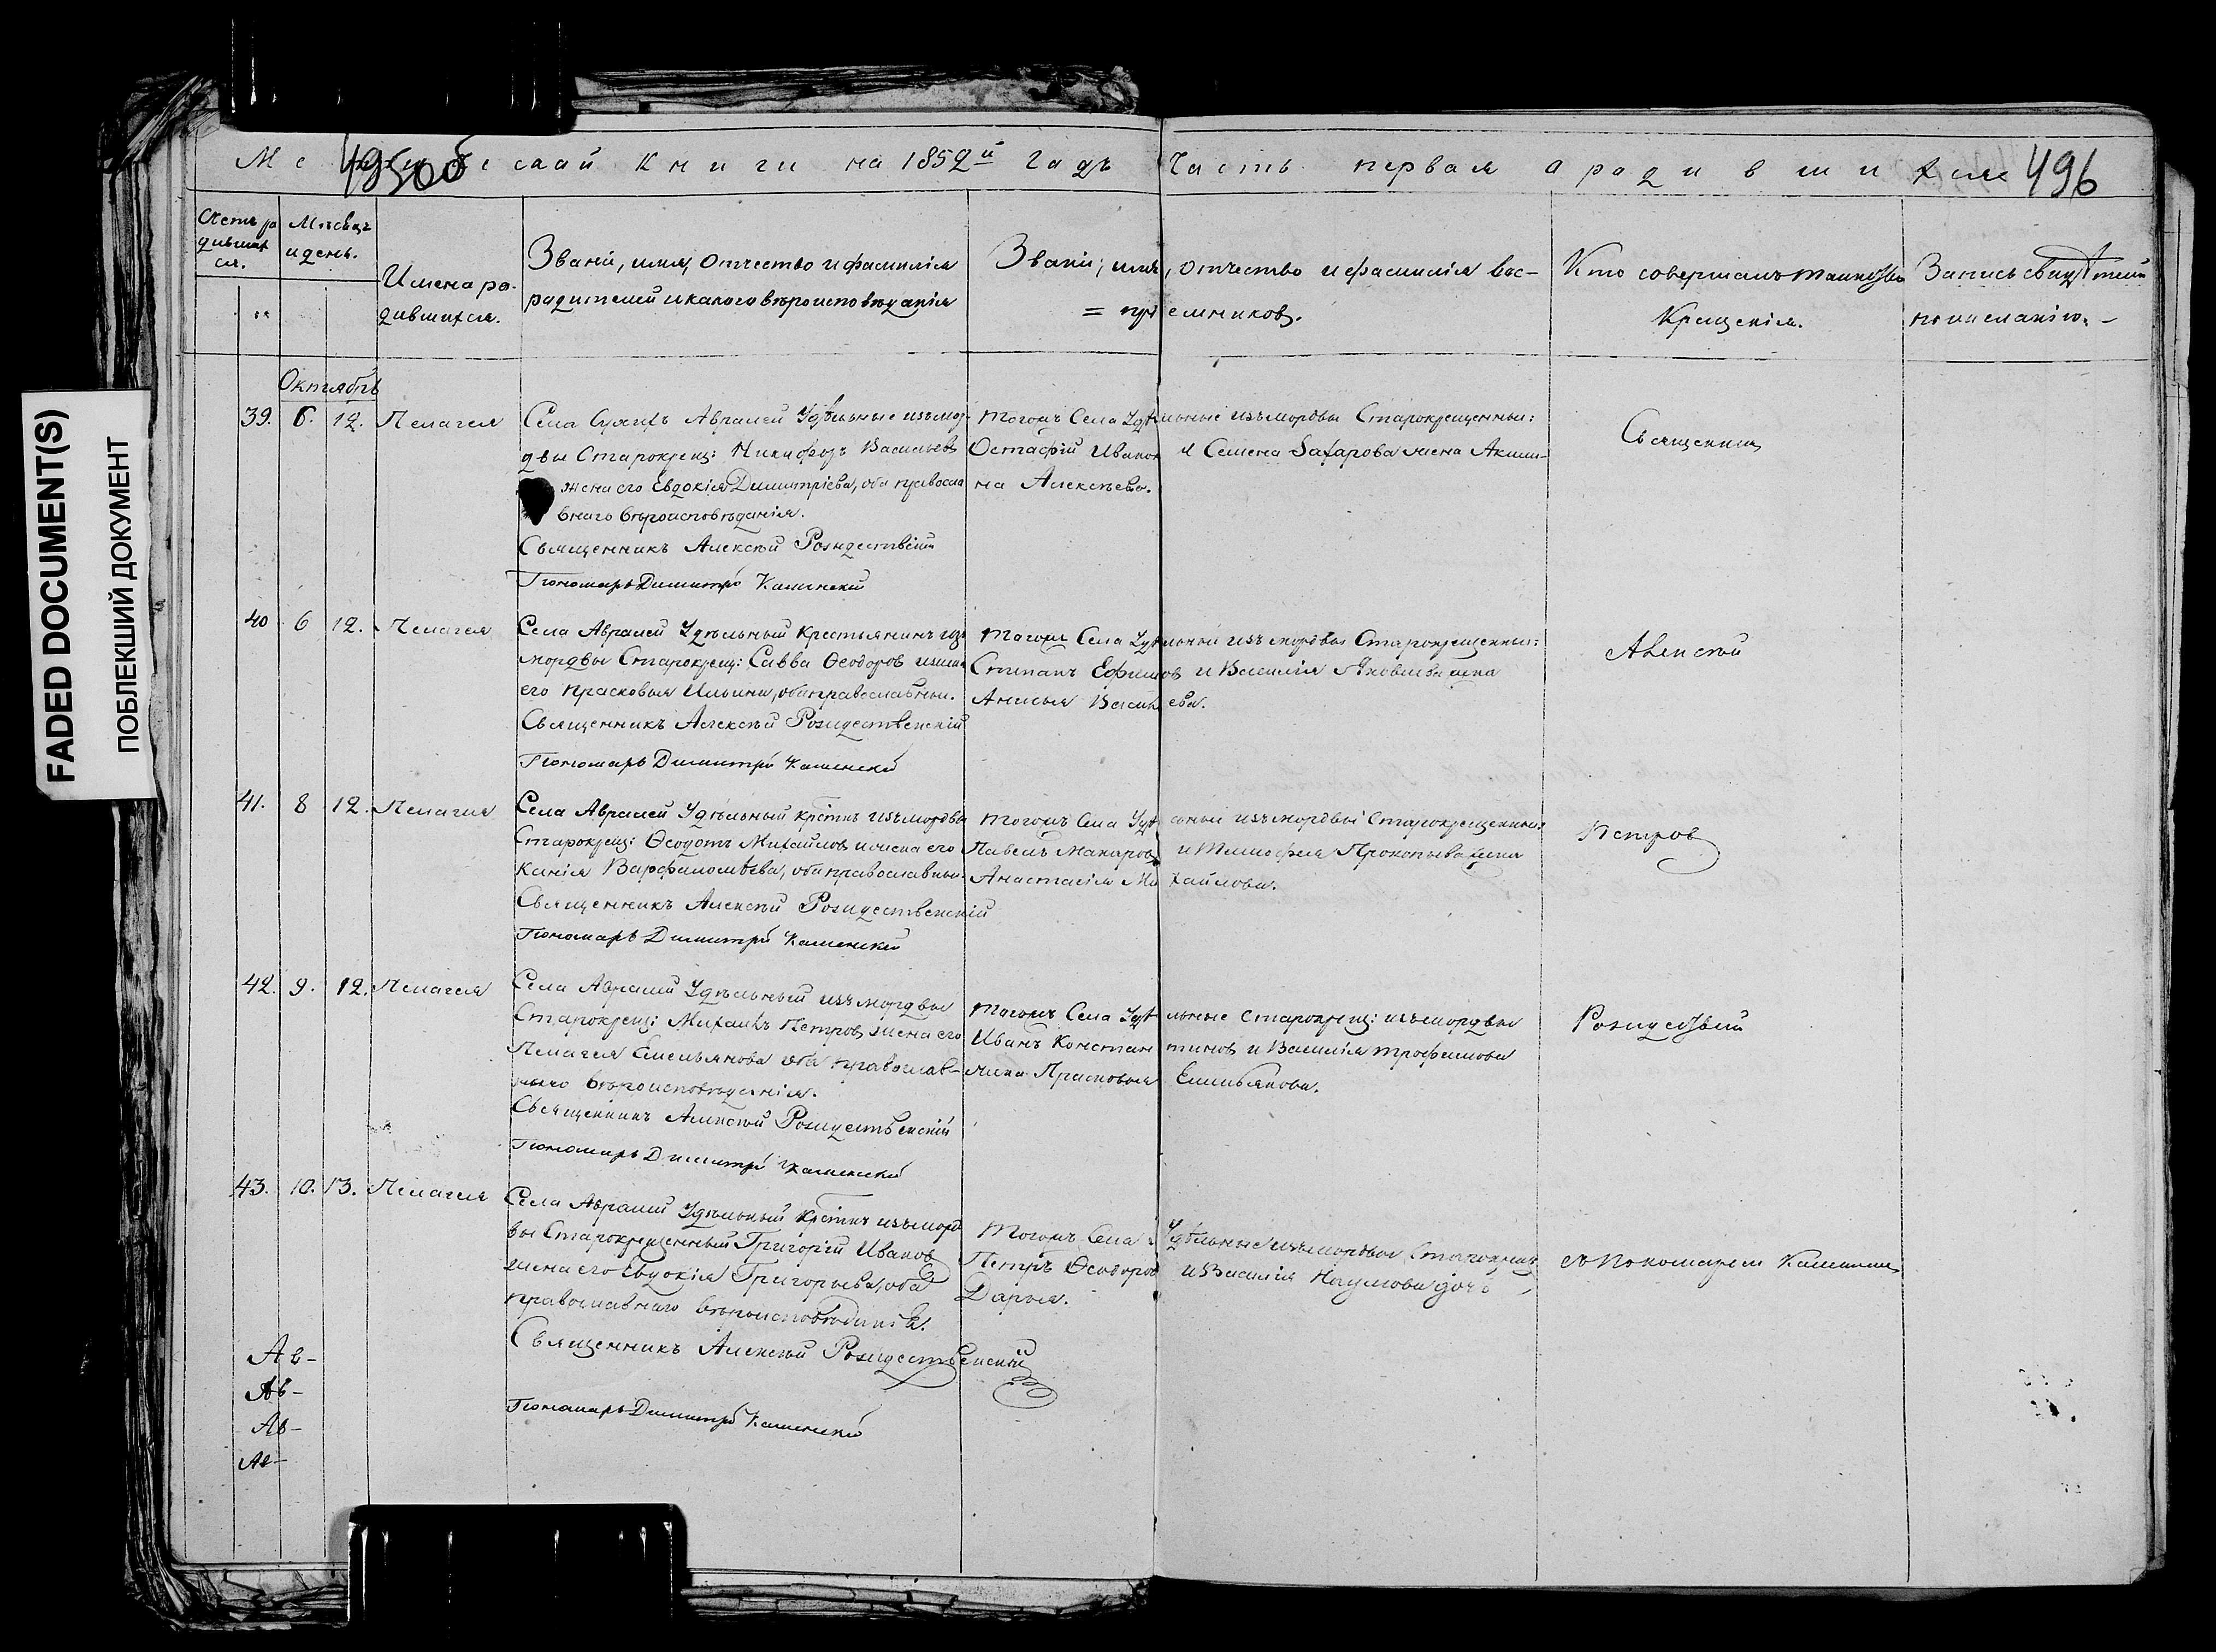 Метрической книги на 1852й годъ Часть первая о родившихся
495 об
496
FADED DOCUMENT(S)
ПОБЛЕКШИЙ ДОКУМЕНТ
Счетъ ро
дивших
ся.
Мѣсяцъ
и день.
Имена ро-
дившихся.
Званіи, имя, отчество и фамилія
родителей и какого вѣроисповѣданія
Званіи, имя, отчество и фамилія вос-
= пріемников.
Кто совершалъ таинство
Крещенія.
Запись свидѣтелей
по желанію. -
Октябрь
39. 6. 12. Пелагея
Села Авралей Удѣльные изъ мор-
двы Старокрещ: Никифоръ Васильев
жена его Евдокія Димитріева, оба правосла
внаго вѣроисповѣданія.
Священникъ Алексѣй Рождествскій
Пономарь Димитрій Каменскій
Тогожъ Села Удѣльные изъ мордвы Старокрещенные:
Остафій Иванов и Семена Захарова жена Акили-
на Алексѣева.
Священник
40 6 12. Пелагея
Села Авралей Удѣльный Крестьянинъ изъ
мордвы Старокрещ: Савва Ѳеодоров и жена
его Прасковья Ильина, оба православные.
Священникъ Алексѣй Рождественскій
Пономарь Димитрій Каменскій
Тогожъ Села Удѣльные изъ мордвы Старокрещенные:
Степанъ Ефимов и Василія Яковлева жена
Анисья Васильева.
Алексѣй
41. 8 12. Пелагия
Села Авралей Удѣльный крестнъ изъ мордвы
Старокрещ: Ѳеодотъ Михайлов и жена его
Варфоломѣева, оба православные.
Священникъ Алексѣй Рождественскій
Пономарь Димитрій Каменскій
Тогожъ Села Удѣльные изъ мордвы Старокрещенные:
Павелъ Макаров и Тимофея Прокопьева жена
Анастасія Михайлова.
Петров
42. 9. 12. Пелагея
Села Авралей Удѣльный изъ мордвы
Старокрещ: Михаилъ Петров, жена его
Пелагея Емельянова оба православ-
наго вѣроисповѣданія.
Священникъ Алексѣй Рождественскій
Пономарь Димитрій Каменскій
Тогожъ Села Удѣльные Старокрещ: изъ мордвы
Иванъ Константинов и Василія Трофимова
жена Прасковья Емельянова.
Рождествский
43. 10. 13. Пелагея
Села Авралей Удѣльный Крестнъ изъ морд
вы Старокрещенный Григорій Иванов
жена его Евдокія Григорьева, оба
православнаго вѣроисповѣданія.
Священникъ Алексѣй Рождественскій
Пономарь Димитрій Каменскій
Тогожъ Села Удѣльные изъ мордвы Старокрещ
Петръ Ѳеодоров и Василія Наумова дочь
Дарья.
съ Пономарем Каменским
Ав-
Ав-
Ав-
Ав-